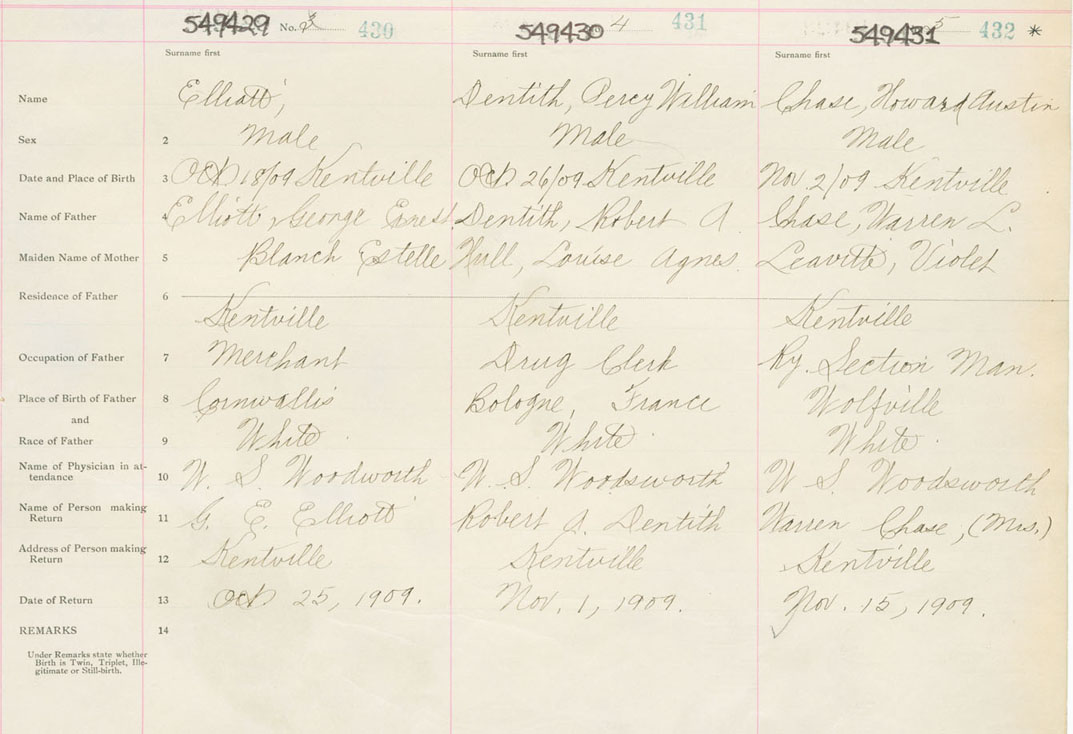 549429 No. 3 430 549430 4 431 549431 5 432 *
Surname first Surname first Surname first
Name Elliott, Dentith, Percy William Chase, Howard Austin
Sex 2 Male Male Male
Date and Place of Birth 3 Oct 18/09 Kentville Oct. 26/09 Kentville Nov 2/09 Kentville
Name of Father 4 Elliott, George Ernest Dentith, Robert A. Chase, Warren L.
Maiden Name of Mother 5 Blanch Estelle Hull, Louise Agnes. Leavitte, Violet
Residence of Father 6
Kentville Kentville Kentville
Occupation of Father 7 Merchant Drug Clerk Ry. Section Man.
Place of Birth of Father 8 Cornwallis Bologne, France Wolfville
and
Race of Father 9 White White White
Name of Physician in at-
tendance 10 W. S. Woodworth W. S. Woodsworth W S. Woodsworth
Name of Person making
Return 11 G. E. Elliott Robert A. Dentith Warren Chase, (Mrs.)
Address of Person making
Return 12 Kentville Kentville Kentville
Date of Return 13 Oct 25, 1909. Nov. 1, 1909. Nov. 15, 1909.
REMARKS 14
Under Remarks state whether
Birth is Twin, Triplet, Ille-
gitimate or Still-birth.